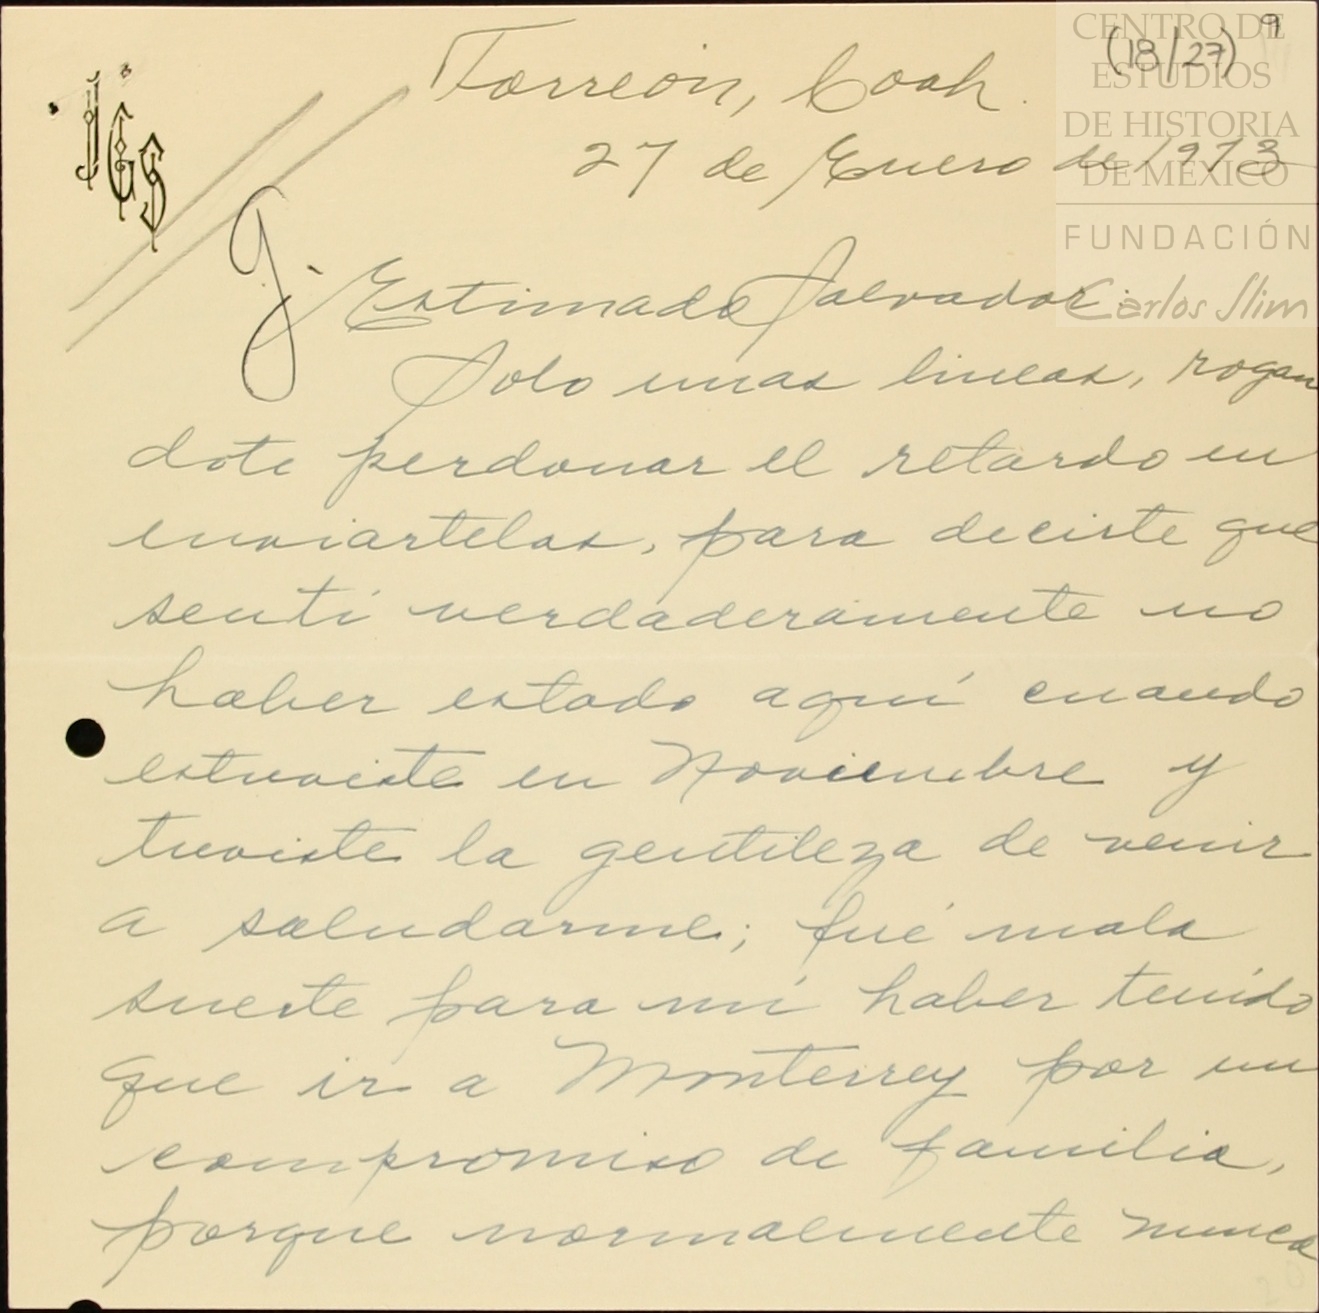 9
(18/27)
CENTRO DE
ESTUDIOS
DE HISTORIA
DE MÉXICO
FUNDACIÓN
Carlos Slim
JGS
Torreón, Coah.
27 de Enero de 1973
J.
Estimado Salvador:
Solo unas lineas, rogan
dote perdonar el retardo en
enviartelas, para decirte que
sentí verdaderamente no
haber estado aquí cuando
estuviste en Noviembre y
tuviste la gentileza de venir
a saludarme; fué mala
suerte para mí haber tenido
que ir a Monterrey por un
compromiso de familia,
porque normalmente nunca